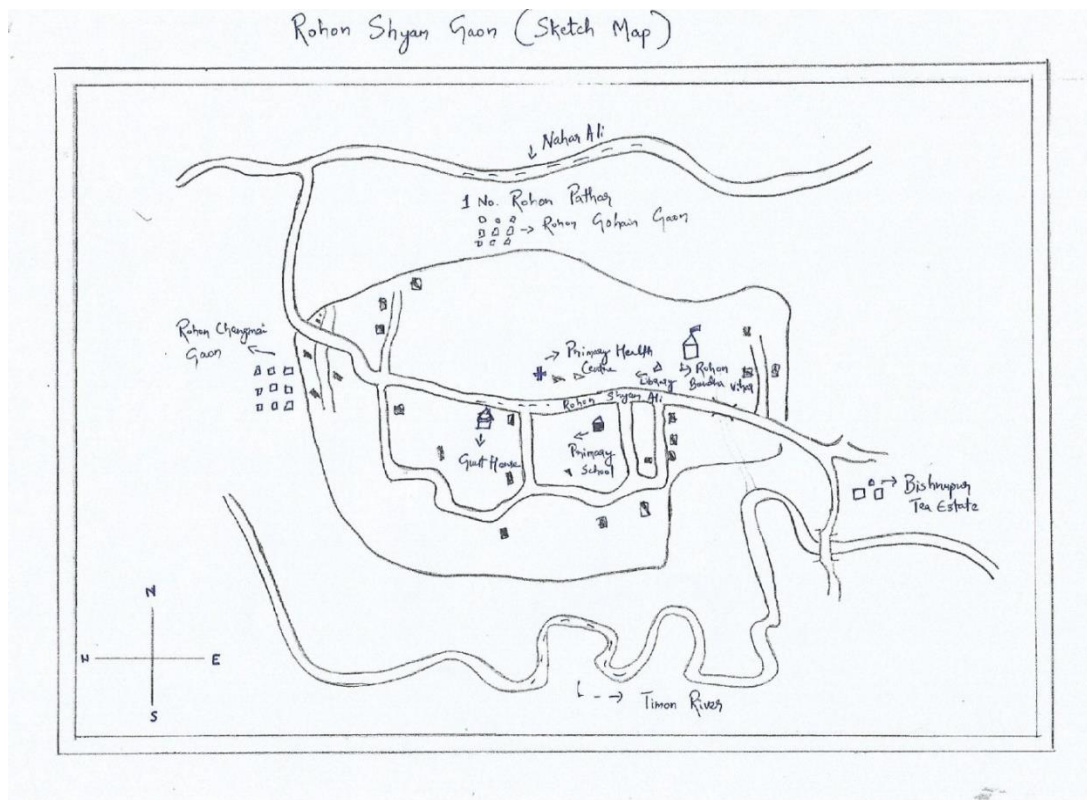 Rohon Shyam Gaon (Sketch Map)
Nahar Ali
1 No. Rohon Pathar
Rohon Gohain Gaon
Rohon Changmai
Gaon
Primary Health
Centre
Library
Rohon
Bauddha Vihar
Rohon Shyam Ali
Guest House
Primary
School
Bishnupur
Tea Estate
N
W
E
S
Timon River